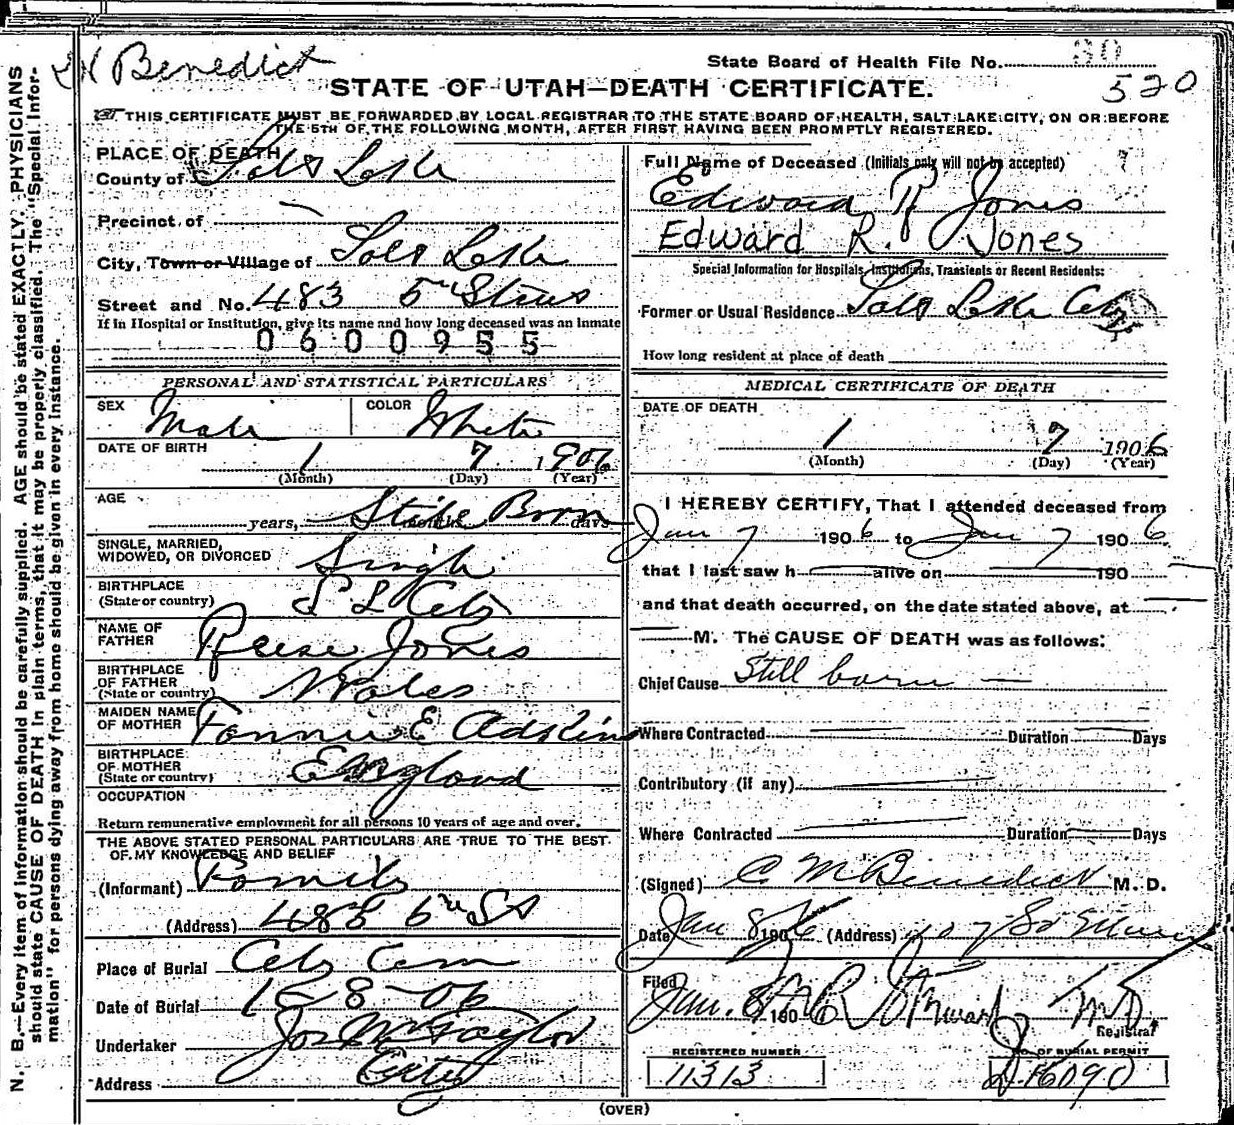 Benedict
State Board of Health File No. 30
520
STATE OF UTAH—DEATH CERTIFICATE.
THIS CERTIFICATE MUST BE FORWARDED BY LOCAL REGISTRAR TO THE STATE BOARD OF HEALTH, SALT LAKE CITY, ON OR BEFORE
THE 5TH OF THE FOLLOWING MONTH, AFTER FIRST HAVING BEEN PROMPTLY REGISTERED.
N. B.—Every item of information should be carefully supplied. AGE should be stated EXACTLY. PHYSICIANS
should state CAUSE OF DEATH in plain terms, that it may be properly classified. The "Special Infor-
mation" for persons dying away from home should be given in every instance.
PLACE OF DEATH
County of Salt Lake
Precinct of —
City, Town or Village of Salt Lake
Street and No. 483 5th
If in Hospital or Institution, give its name and how long deceased was an Inmate
0600955
PERSONAL AND STATISTICAL PARTICULARS
SEX Male COLOR White
DATE OF BIRTH 1 7 1906
(Month) (Day) (Year)
AGE years, Still Born months days
SINGLE, MARRIED,
WIDOWED, OR DIVORCED Single
BIRTHPLACE
(State or country) S L City
NAME OF
FATHER Reese Jones
BIRTHPLACE
OF FATHER
(State or country) Wales
MAIDEN NAME
OF MOTHER Fannie E Adskins
BIRTHPLACE
OF MOTHER
(State or country) England
OCCUPATION
Return remunerative employment for all persons 10 years of age and over.
THE ABOVE STATED PERSONAL PARTICULARS ARE TRUE TO THE BEST
OF MY KNOWLEDGE AND BELIEF
(Informant) Family
(Address) 483 St
Place of Burial City Cem
Date of Burial 1-8-06
Undertaker Jos Wm Taylor
Address City
Full Name of Deceased (Initials only will not be accepted) ?
Edward R Jones
Edward R. Jones
Special Information for Hospitals, Institutions, Transients or Recent Residents:
Former or Usual Residence Salt Lake City
How long resident at place of death
MEDICAL CERTIFICATE OF DEATH
DATE OF DEATH
1 7 1906
(Month) (Day) (Year)
I HEREBY CERTIFY, That I attended deceased from
Jan 7 1906 to Jan 7 1906
that I last saw h alive on 190
and that death occurred, on the date stated above, at
M. The CAUSE OF DEATH was as follows:
Chief Cause Still born —
Where Contracted Duration Days
Contributory (if any)
Where Contracted Duration Days
(Signed) C M Benedict M. D.
Date Jan 8 1906 (Address) So Main
Filed
Jan. 8 190 M.D.
Registrar
REGISTERED NUMBER NO. OF BURIAL PERMIT
11313 16090
(OVER)